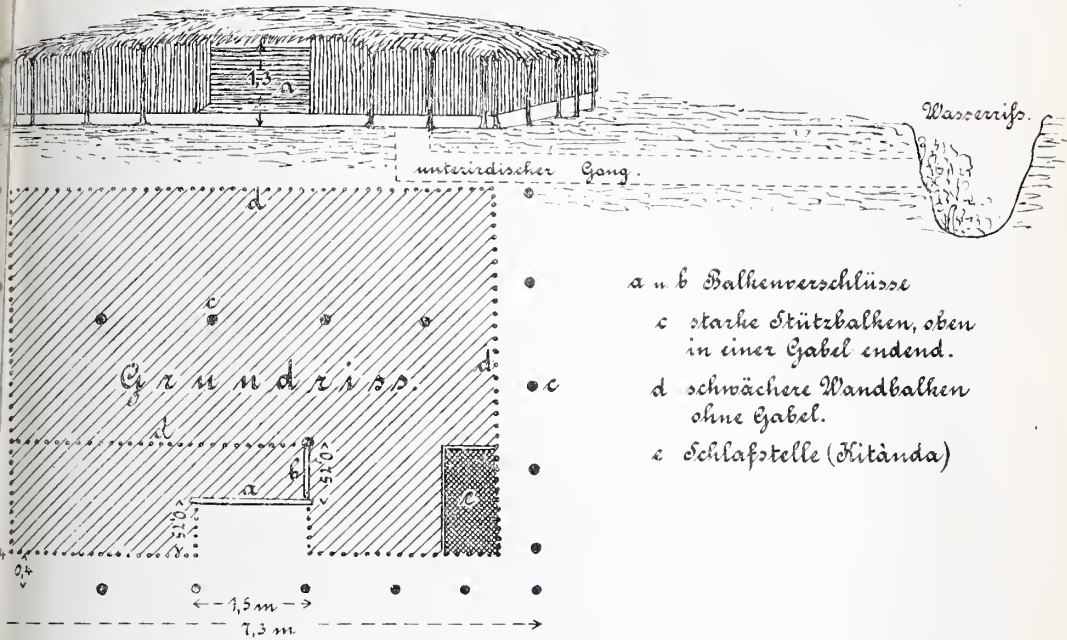 1,3 a
Wasserriſs.
unterirdischer Gang.
d
c
d
Grundriss.
c
d
b
0,75
a
0,75
e
0,4
1,5 m
7,3 m
a u. b Balkenverschlüsse
c starke Stützbalken, oben
in einer Gabel endend.
d schwächere Wandbalken
ohne Gabel.
e Schlaſstelle (Kitànda)